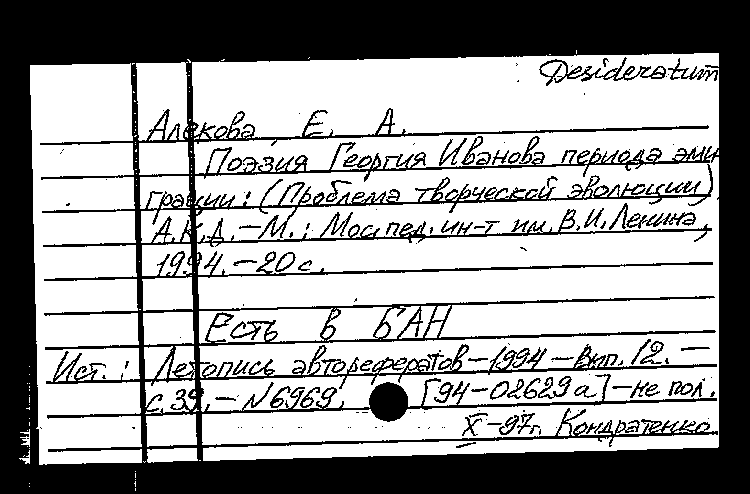 Desideratum
Алекова Е. А.
Поэзия Георгия Иванова периода эми
грации: (Проблема творческой эволюции)
А.К.Д. – М.: Мос. пед. ин-т им. В.И. Ленина,
1994. – 20 с.
Есть в БАН
Ист.: Летопись авторефератов – 1994 – Вып. 12. –
с. 39. – N 6969. [94-02629а] – не пол.
X – 97г. Кондратенко